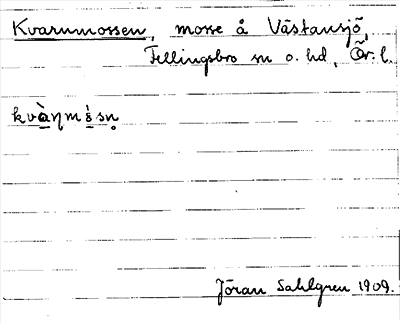 Kvarnmossen, mosse å Västansjö,
Fellingsbro sn o. hd, Ör. l.
kvàɳmɛ́sn̥
Jöran Sahlgren 1909.